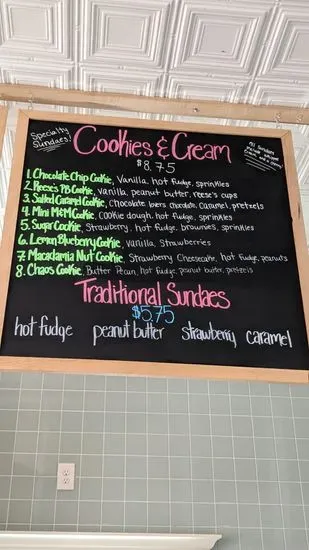 Specialty Sundaes!
Cookies & Cream
$8.75
1. Chocolate Chip Cookie, Vanilla, hot fudge, sprinkles
2. Reese's PB Cookie, vanilla, peanut butter, reese's cups
3. Salted Caramel Cookie, chocolate lovers chocolate, caramel, pretzels
4. Mini M&M Cookie, cookie dough, hot fudge, sprinkles
5. Sugar Cookie, Strawberry, hot fudge, brownies, sprinkles
6. Lemon Blueberry Cookie, vanilla, Strawberries
7. Macadamia Nut Cookie, Strawberry Cheesecake, hot fudge, peanuts
8. Chaos Cookie, Butter Pecan, hot fudge, peanut butter, pretzels
Traditional Sundaes
$5.75
hot fudge peanut butter strawberry caramel